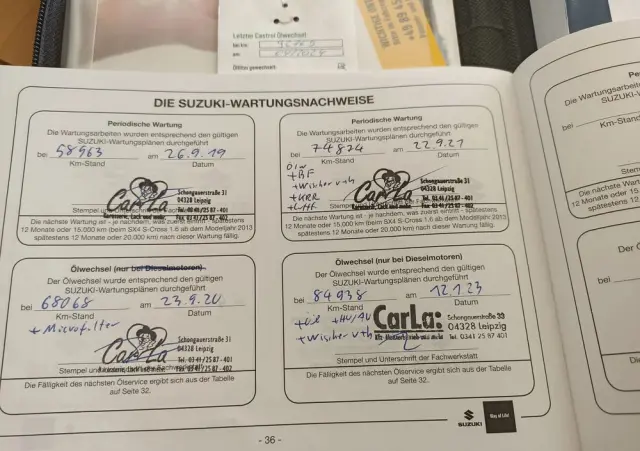 Letzter Castrol Ölwechsel
DIE SUZUKI-WARTUNGSNACHWEISE
Periodische Wartung
Die Wartungsarbeiten wurden entsprechend den gültigen
SUZUKI-Wartungsplänen durchgeführt
bei 58963 am 26.9.19
Km-Stand Datum
CarLa
Schongauerstraße 31
04328 Leipzig
Tel. 03 41/25 87 - 401
Fax 03 41/25 87 - 402
Karosserie, Lack und mehr.
Die nächste Wartung ist - je nachdem, was zuerst eintritt - spätestens
12 Monate oder 15.000 km (beim SX4 S-Cross 1.6 ab dem Modelljahr 2013
spätestens 12 Monate oder 20.000 km) nach dieser Wartung fällig.
Ölwechsel (nur bei Dieselmotoren)
Der Ölwechsel wurde entsprechend den gültigen
SUZUKI-Wartungsplänen durchgeführt
bei 68068 am 23.9.20
Km-Stand Datum
+ Microfilter
CarLa
Schongauerstraße 31
04328 Leipzig
Tel. 03 41/25 87 - 401
Fax 03 41/25 87 - 402
Die Fälligkeit des nächsten Ölservice ergibt sich aus der Tabelle
auf Seite 32.
Periodische Wartung
Die Wartungsarbeiten wurden entsprechend den gültigen
SUZUKI-Wartungsplänen durchgeführt
bei 74874 am 22.9.21
Km-Stand Datum
+BF
+Wischer
CarLa
Schongauerstraße 31
04328 Leipzig
Tel. 03 41/25 87 - 401
Fax 03 41/25 87 - 402
Karosserie, Lack und mehr.
Die nächste Wartung ist - je nachdem, was zuerst eintritt - spätestens
12 Monate oder 15.000 km (beim SX4 S-Cross 1.6 ab dem Modelljahr 2013
spätestens 12 Monate oder 20.000 km) nach dieser Wartung fällig.
Ölwechsel (nur bei Dieselmotoren)
Der Ölwechsel wurde entsprechend den gültigen
SUZUKI-Wartungsplänen durchgeführt
bei 84938 am 12.1.23
Km-Stand Datum
+Öl +HU/AU
+Wischer
CarLa:
Schongauerstraße 33
04328 Leipzig
Tel. 0341 25 87 401
Stempel und Unterschrift der Fachwerkstatt
Die Fälligkeit des nächsten Ölservice ergibt sich aus der Tabelle
auf Seite 32.
SUZUKI
Way of Life!
- 36 -
Die Wartungsarbeiten
SUZUKI-W
bei
Km-Stand
Die nächste Wartung
12 Monate oder 15.0
Der Ö
bei